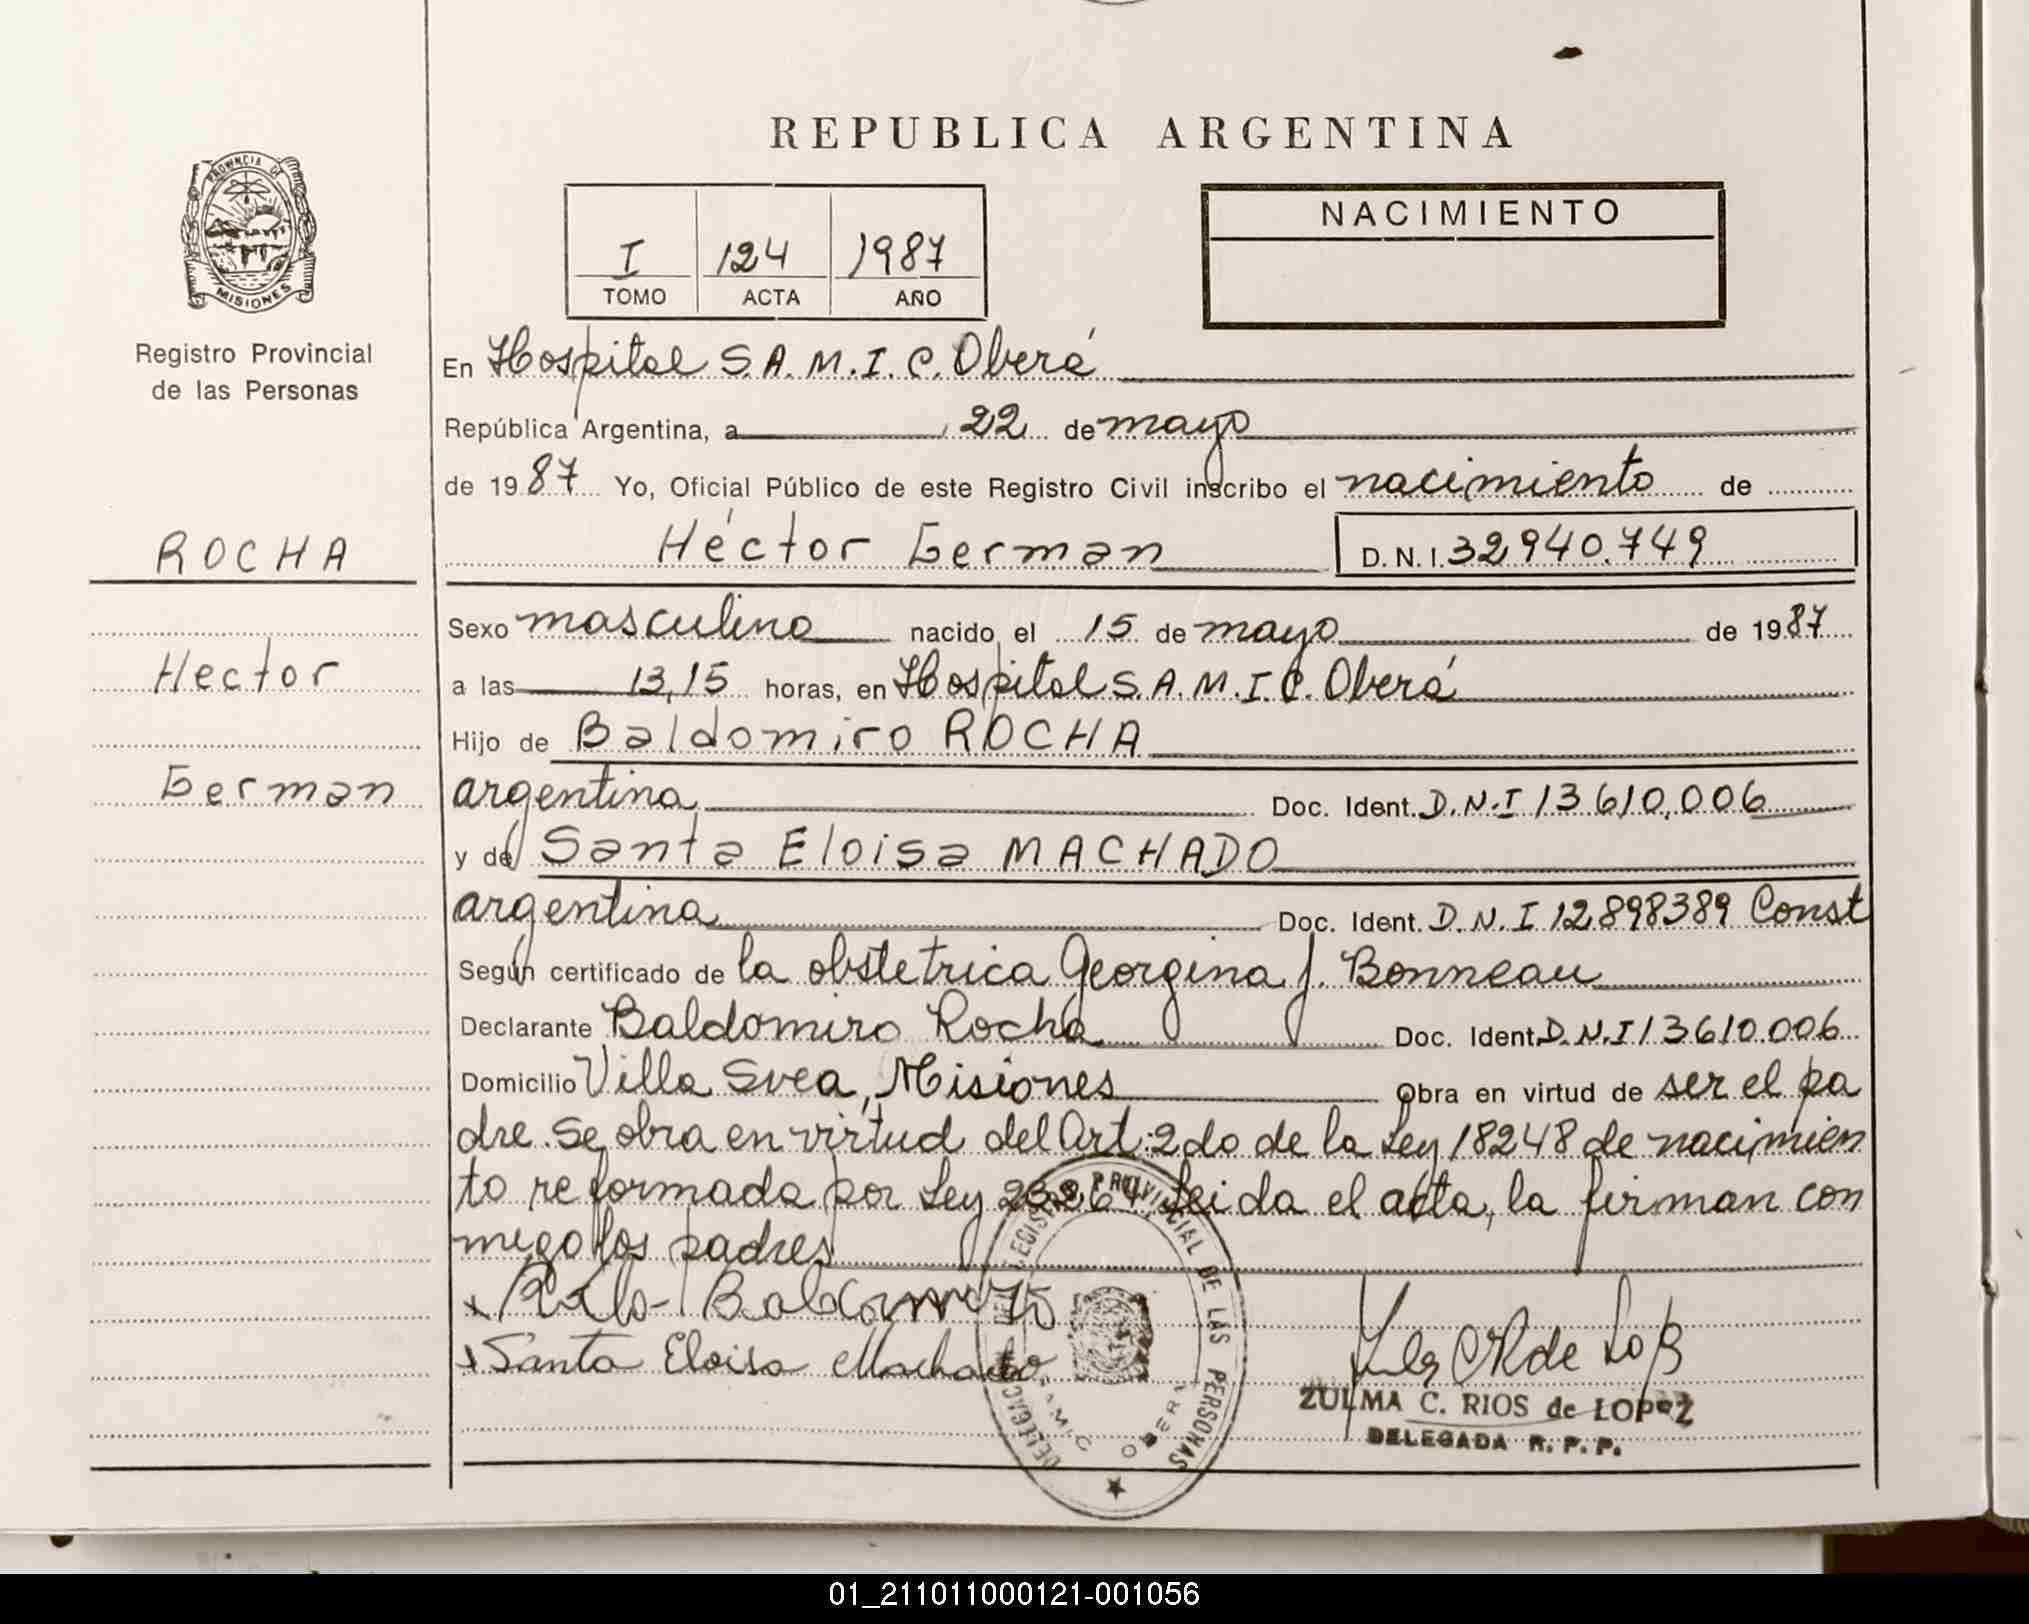 REPUBLICA ARGENTINA
PROVINCIA DE
MISIONES
Registro Provincial
de las Personas
I 124 1987
TOMO ACTA AÑO
NACIMIENTO
En Hospital S.A.M.I.C. Oberá
República Argentina, a 22 de mayo
de 1987 Yo, Oficial Público de este Registro Civil inscribo el nacimiento de
ROCHA
Héctor German D.N.I. 32940.749
Sexo masculino nacido el 15 de mayo de 1987
Hector
a las 13,15 horas, en Hospital S.A.M.I.C. Oberá
Hijo de Baldomiro ROCHA
German
argentina Doc. Ident. D.N.I 13610,006
y de Santa Eloisa MACHADO
argentina Doc. Ident. D.N.I 12898389 Const
Según certificado de la obstetrica Georgina J. Bonneau
Declarante Baldomiro Rocha Doc. Ident. D.N.I 13610.006
Domicilio Villa Svea, Misiones Obra en virtud de ser el pa
dre. Se obra en virtud del Art: 2do de la Ley 18248 de nacimien
to reformada por Ley 23264, Leida el acta, la firman con
migo los padres
Baldomiro
Santa Eloisa Machado
DELEGACION DEL REGISTRO PROVINCIAL DE LAS PERSONAS
SAMIC OBERA
ZULMA C. RIOS de LOPEZ
DELEGADA R. P. P.
01_211011000121-001056